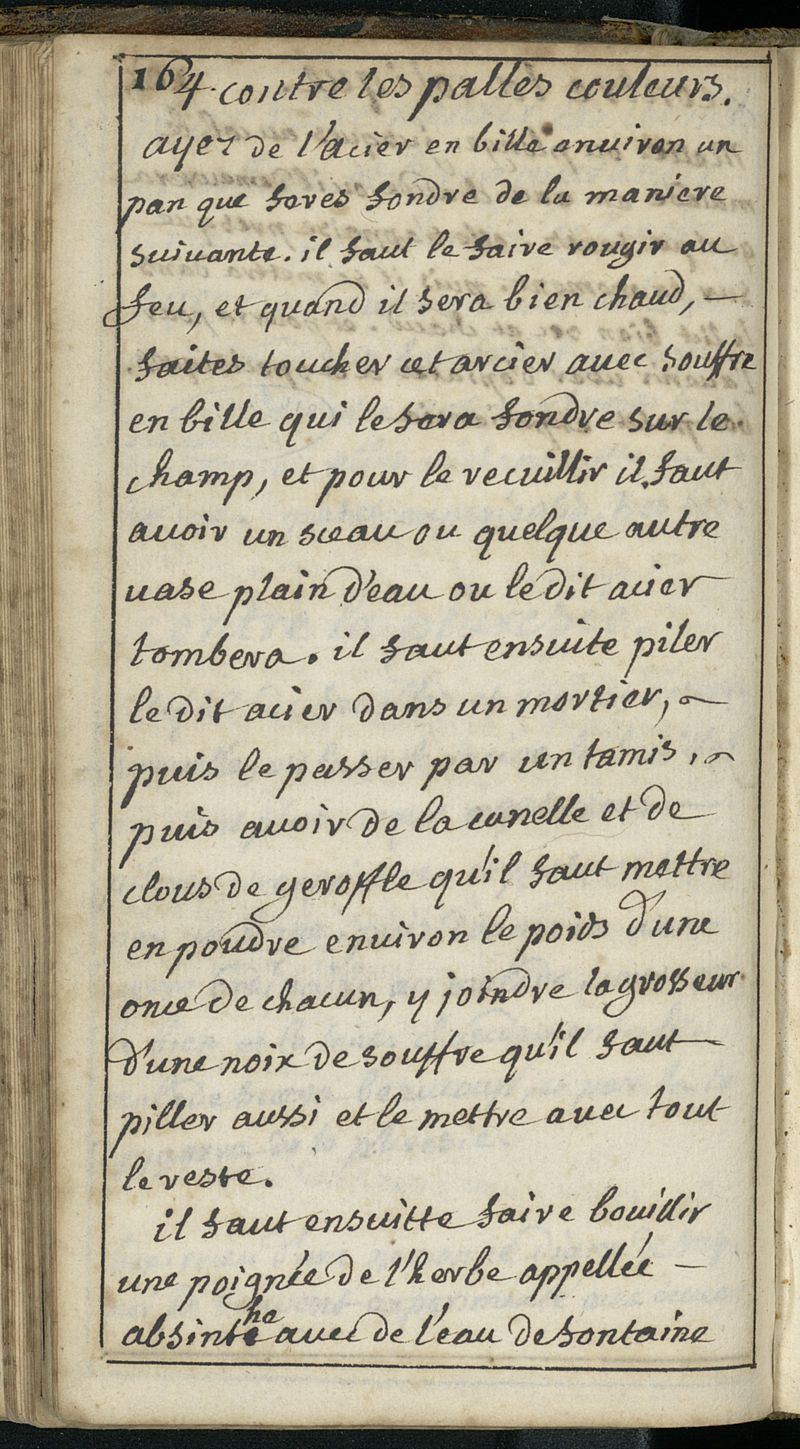 164. contre les palles couleurs.
ayez de l'acier en bille enuiron un
pan que feres fondre de la maniere
suiuante. il faut le faire rougir au
feu, et quand il sera bien chaud, —
faites toucher cet arcier avec souffre
en bille qui le fera fondre sur le
champ, et pour le recuillir il faut
auoir un sceau ou quelque autre
uase plain d'eau ou le dit acier
tombera. il faut ensuite piler
le dit acier dans un mortier, ~
puis le passer par un tamis, ~
puis auoir de la canelle et de
clous de geroffle qu'il faut mettre
en poudre enuiron le poids d'une
once de chacun, y joindre la grosseur
d'une noix de souffre qu'il faut —
piller aussi et le mettre auec tout
le reste.
il faut ensuitte faire bouillir
une poignée de l'herbe appellée —
absinthe auec de l'eau de fontaine